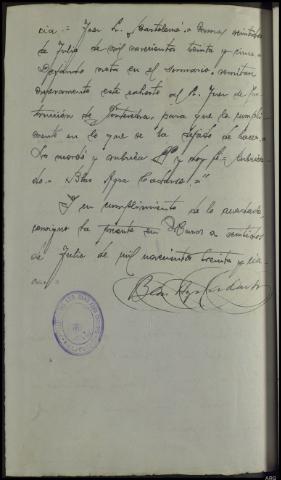 cia = Juez S. Bartolomé = Bueu veintidos
de Julio de mil novecientos treinta y cinco =
Dejando nota en el sumario, remitase
nuevamente este exhorto al S. Juez de Ins-
trucción de Pontevedra para que la cumpli-
mente en lo que se ha dejado de hacer.
Lo mandó y rubrica Sª y doy fé = Rubrica-
do = Blas Agra Cadarso = "
Y en cumplimiento de lo acordado
consigno la presente en Bueu a veintidos
de Julio de mil novecientos treinta y cin-
co =
Blas Agra Cadarso